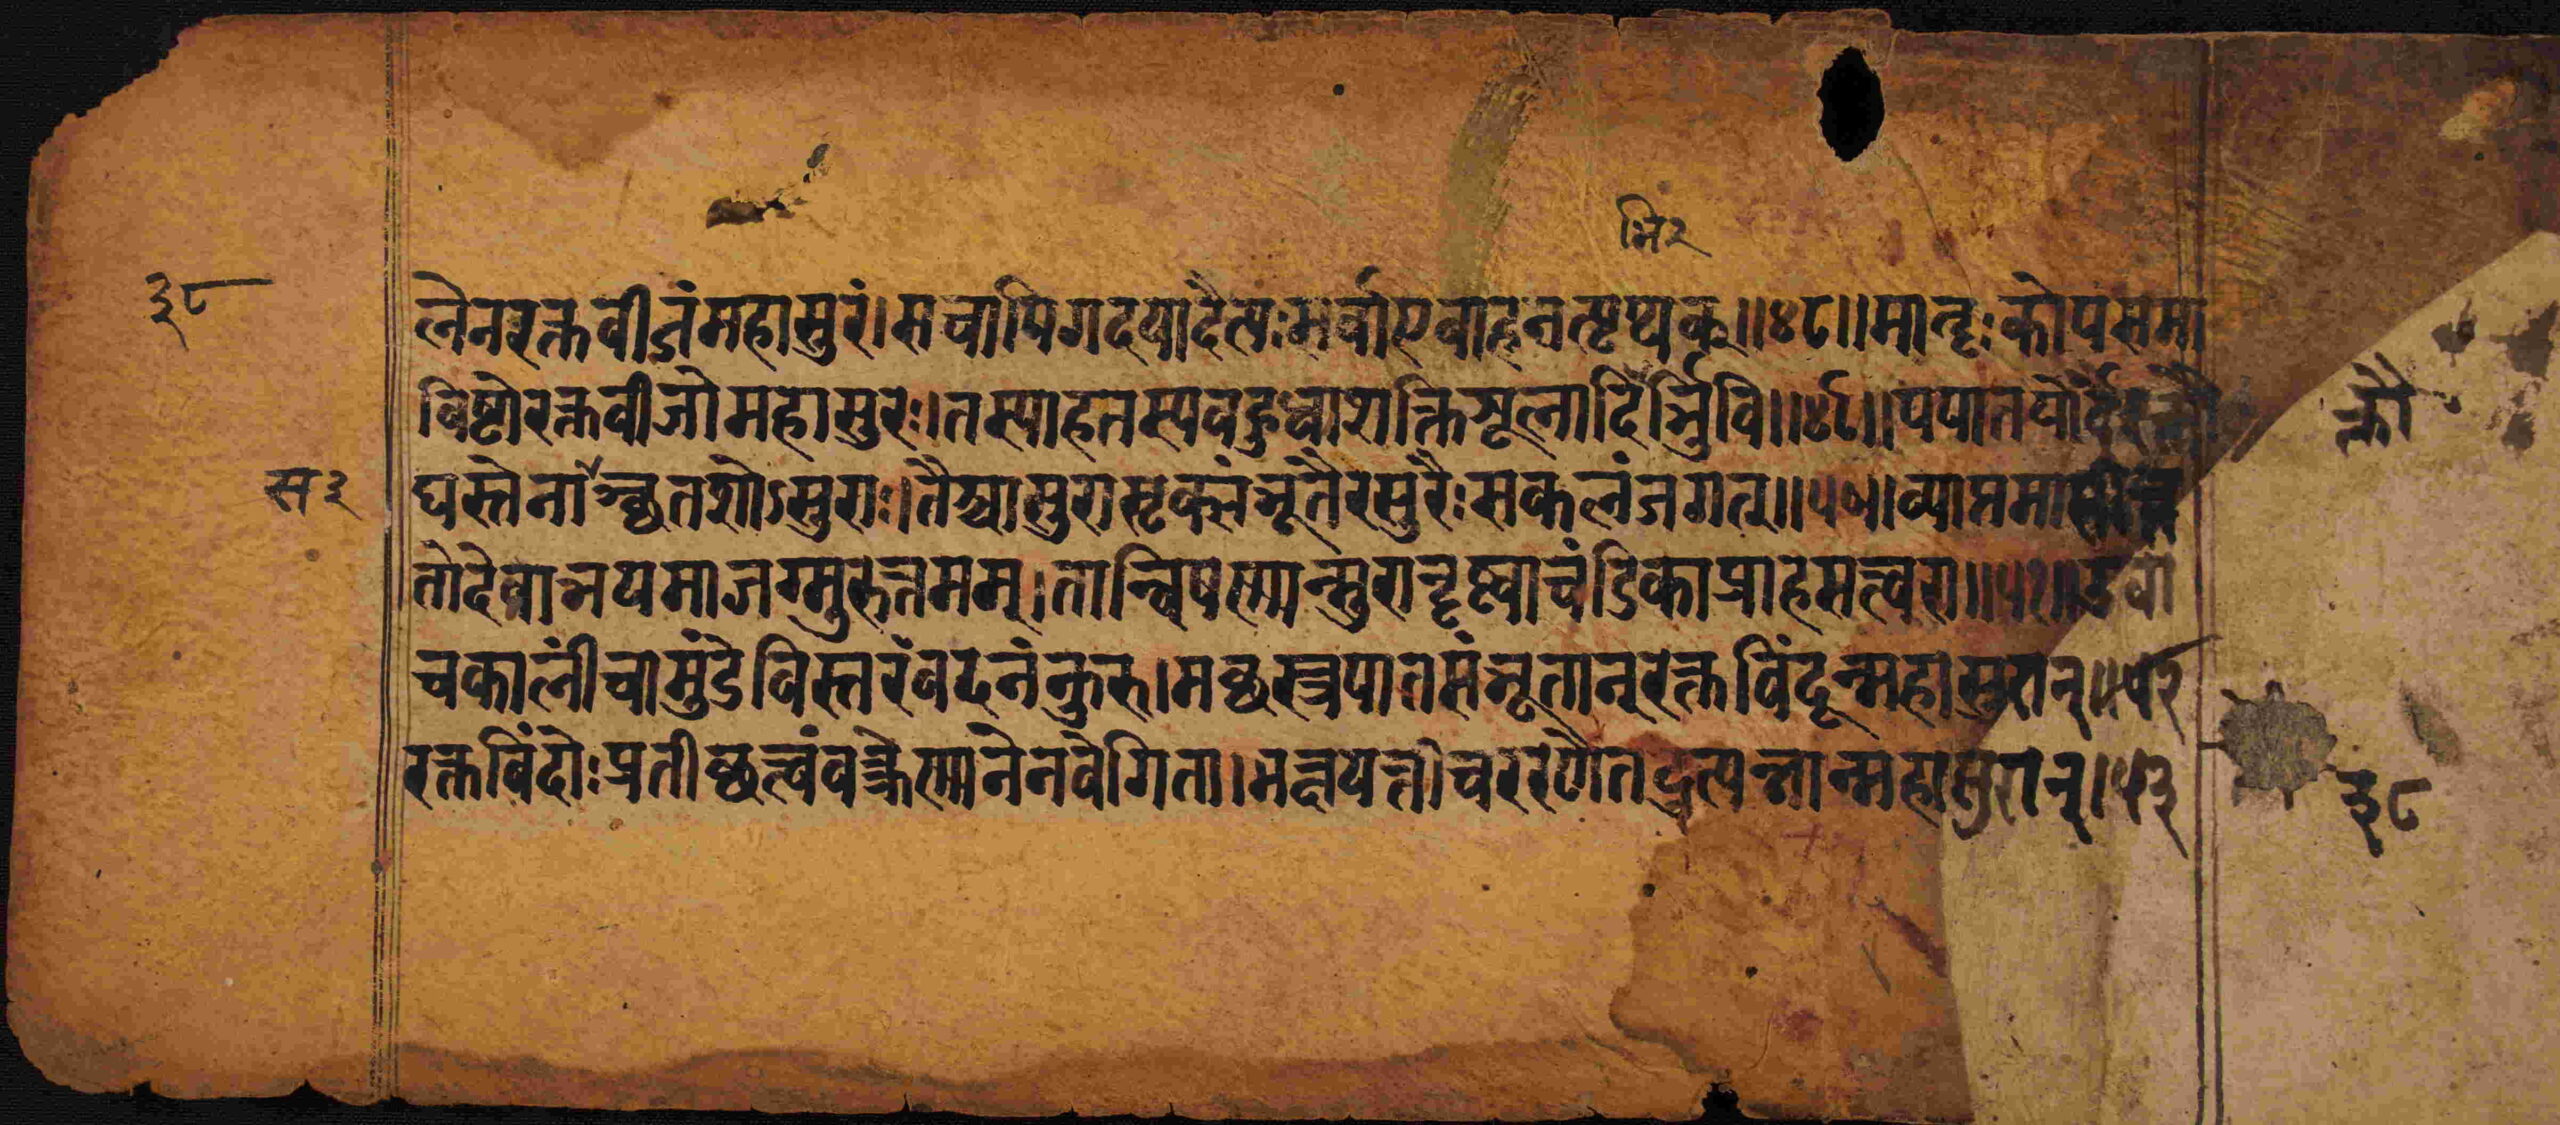 भि२
३८
लेनरक्तवीजंमहासुरं।सचापिगदयादैत्यःसर्वाएवाहनत्पृथक्॥४८॥मातृःकोपसमा
विष्टोरक्तवीजोमहासुरः।तस्याहतस्यवहुधाशक्तिशूलादिर्भिभुवि॥४९॥पपातयोर्वैरक्तौ
क्तौ
स३
घस्तेनाञ्छतशोऽसुराः।तैश्चासुरासृक्संभूतैरसुरैःसकलंजगत्॥५०॥व्याप्तमासीत्त
तोदेवाभयमाजग्मुरुत्तमम्।तान्विषस्मान्सुरान्दृष्ट्वाचंडिकाप्राहसत्वरा॥५१॥उवा
चकालींचामुंडेविस्तरंवदनंकुरु।मछस्त्रपातसंभूतान्रक्तविंदून्महासुरान्॥५२
रक्तविंदोःप्रतीछत्वंवक्त्रेस्मानेनवेगिता।भक्षयन्तीचररणेतदुत्पन्नान्महासुरान्।५३
३८